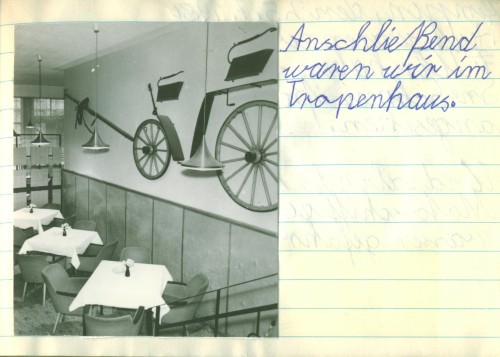 Anschließend
waren wir im
Tropenhaus.